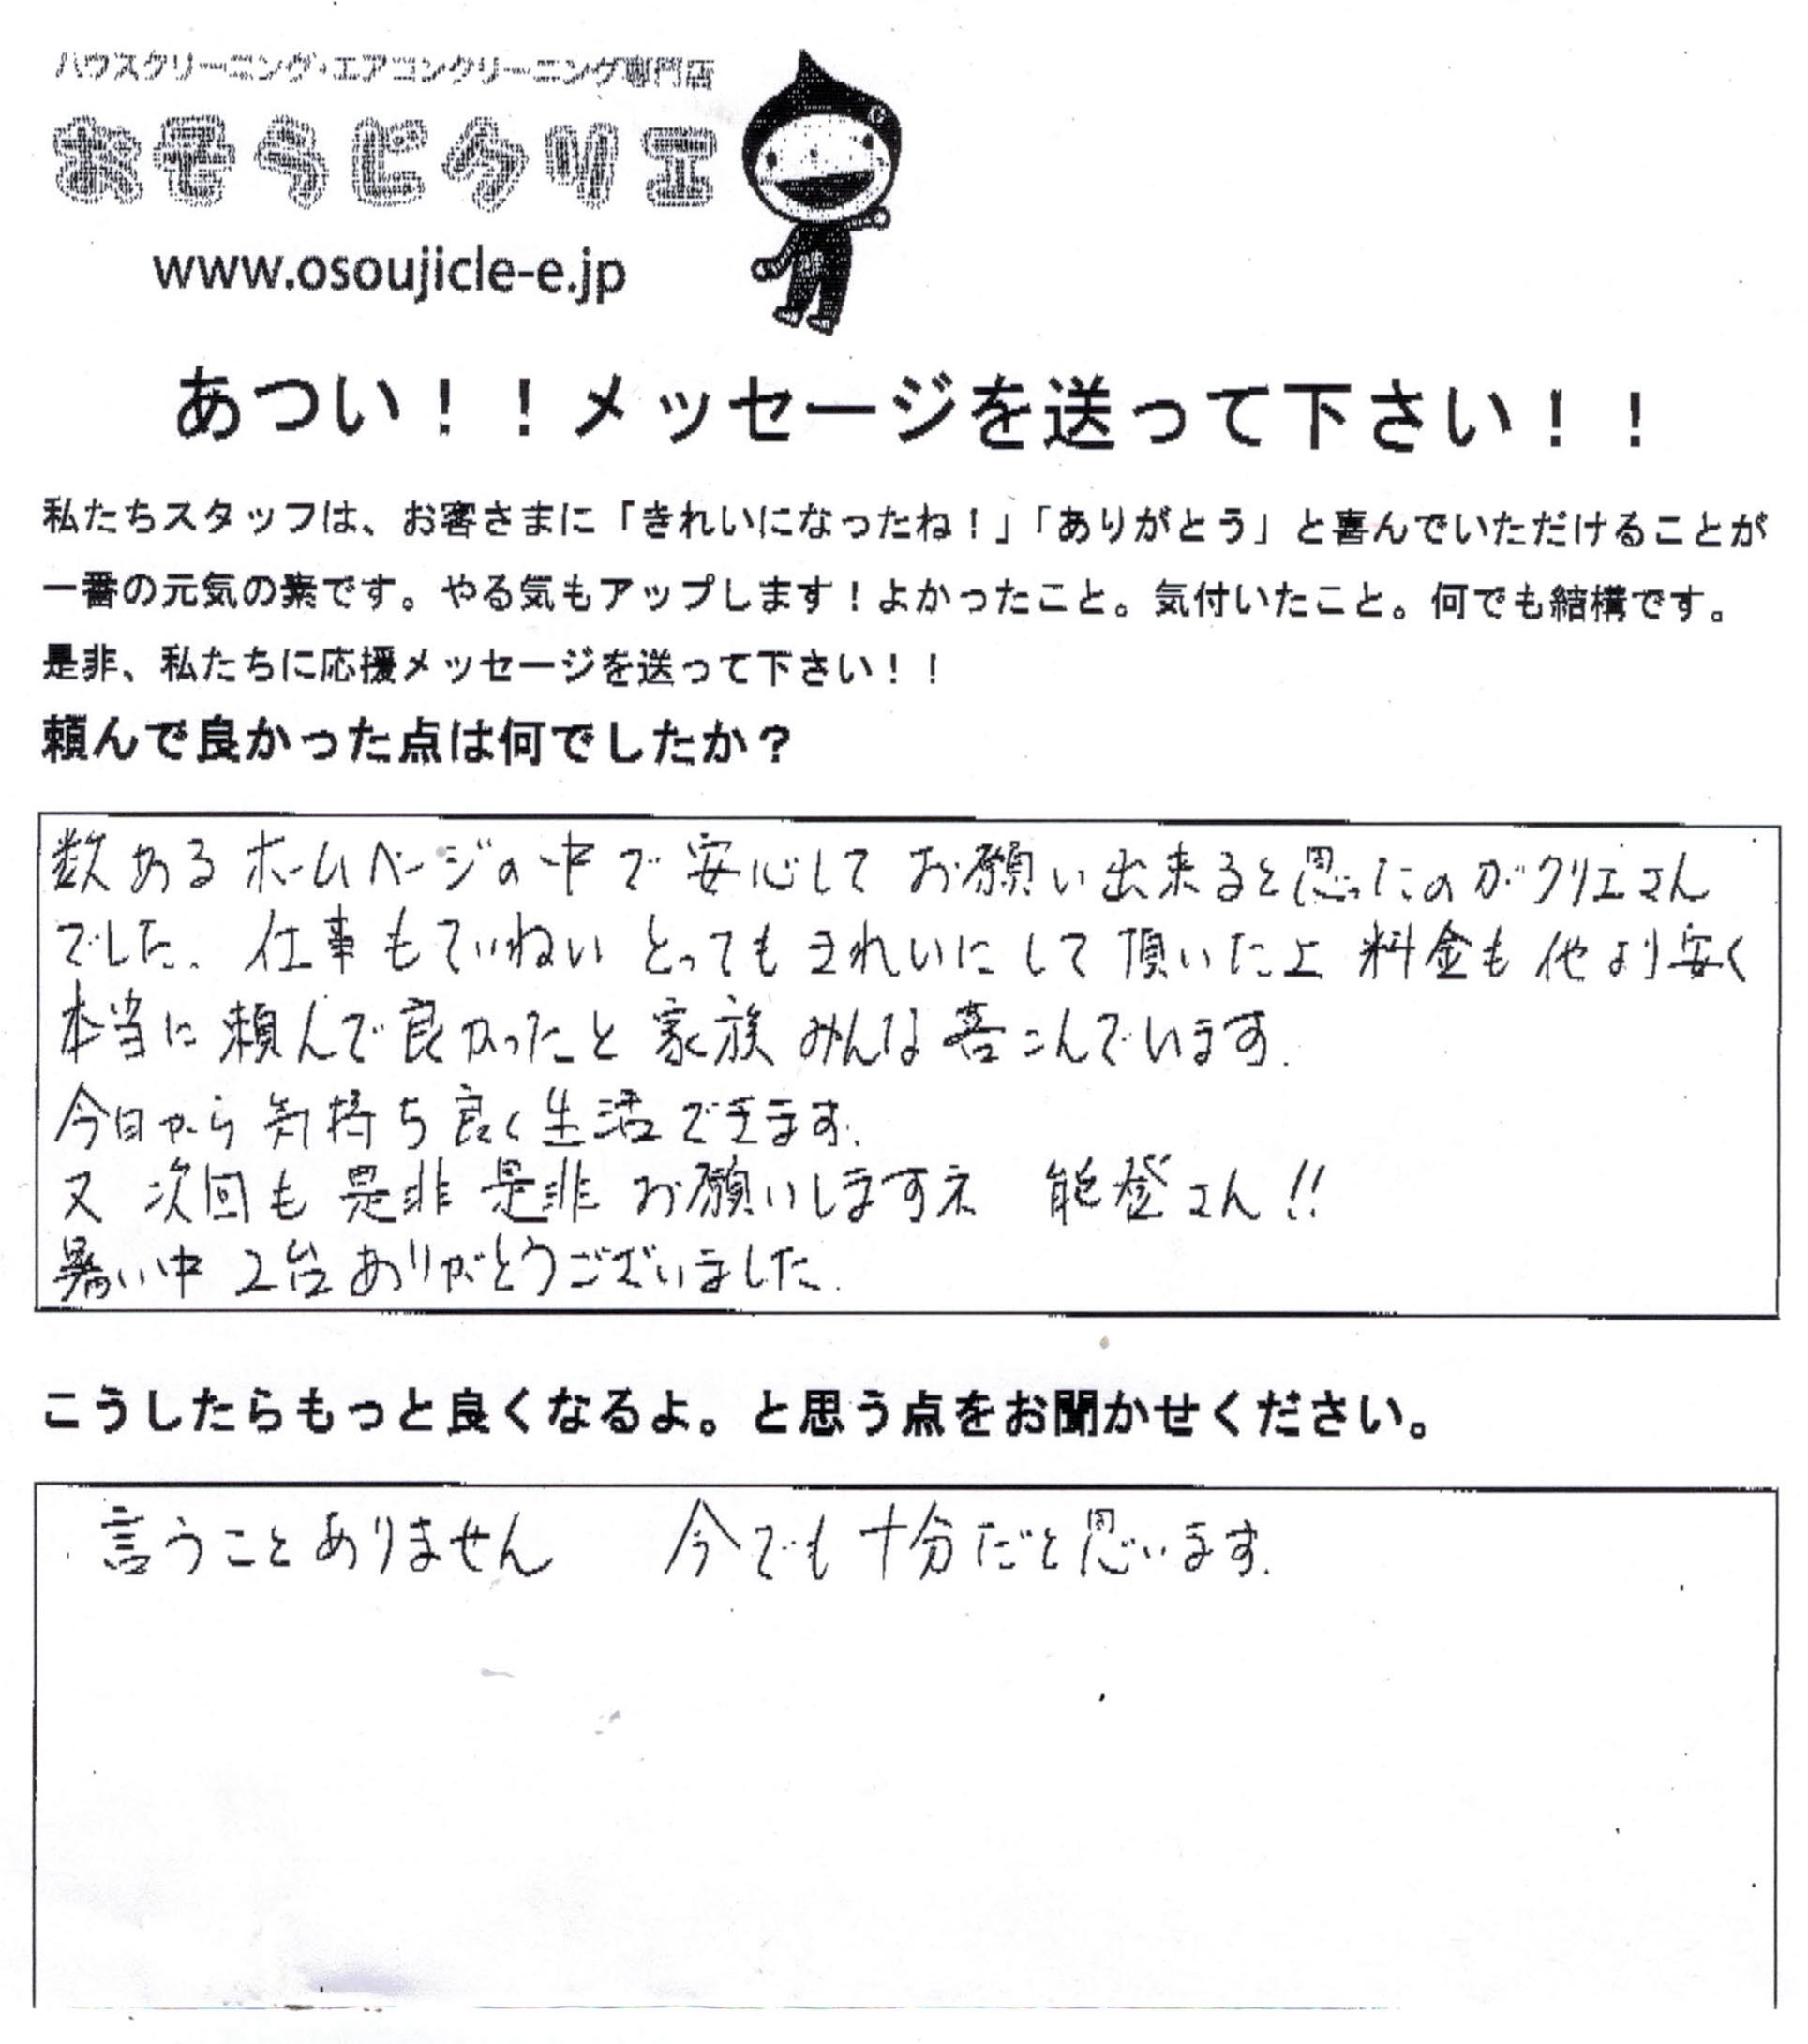 ハウスクリーニング・エアコンクリーニング専門店
おそうじクリエ
www.osoujicle-e.jp
あつい！！メッセージを送って下さい！！
私たちスタッフは、お客さまに「きれいになったね！」「ありがとう」と喜んでいただけることが
一番の元気の素です。やる気もアップします！よかったこと。気付いたこと。何でも結構です。
是非、私たちに応援メッセージを送って下さい！！
頼んで良かった点は何でしたか？
数あるホームページの中で安心してお願い出来ると思ったのがクリエさん
でした。仕事もていねい とってもきれいにして頂いた上 料金も他より安く
本当に頼んで良かったと家族みんな喜こんでいます.
今日から気持ち良く生活できます.
又 次回も是非是非お願いしますネ 能登さん!!
暑い中 2台ありがとうございました.
こうしたらもっと良くなるよ。と思う点をお聞かせください。
言うことありません 今でも十分だと思います.